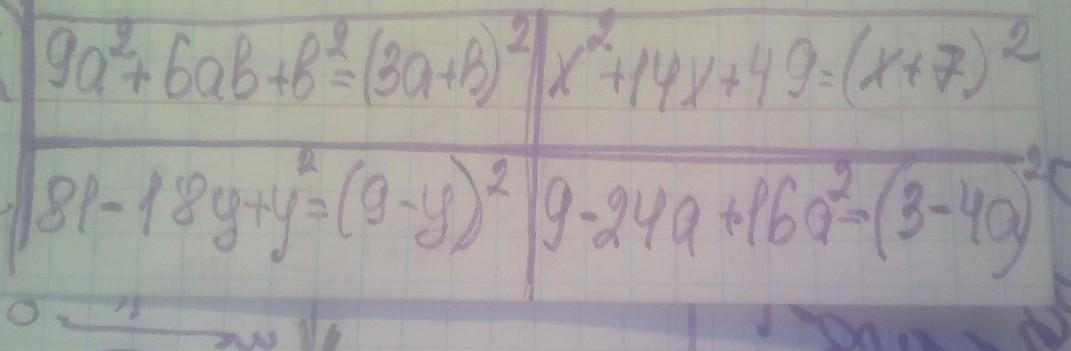 9a²+6ab+b²=(3a+b)²
x²+14x+49=(x+7)²
81-18y+y²=(9-y)²
9-24a+16a²=(3-4a)²